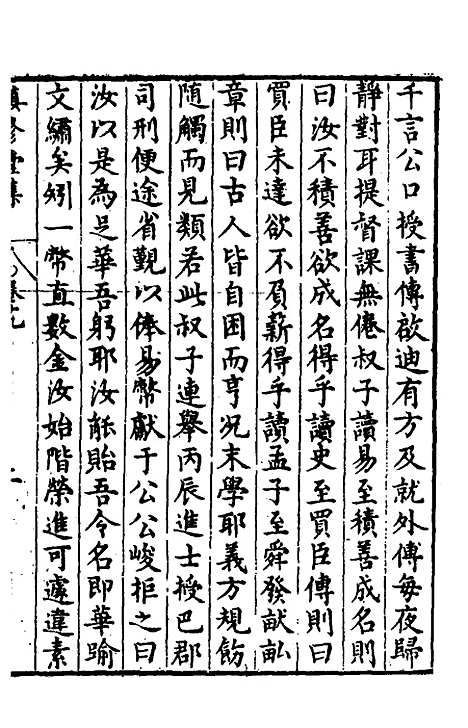 千言公口授書傳啟迪有方及就外傅每夜歸
靜對耳提督課無倦叔子讀易至積善成名則
曰汝不積善欲成名得乎讀史至買臣傳則曰
買臣未達欲不負薪得乎讀孟子至舜發畎畝
章則曰古人皆自困而亨况末學耶義方規飭
随觸而見類若此叔子連舉丙辰進士授巴郡
司刑便途省覲以俸易幣獻于公公峻拒之曰
汝以是為足華吾躬耶汝能貽吾令名即華踰
文繡矣矧一幣直數金汝始階榮進可遽違素
慎修堂集
卷十九